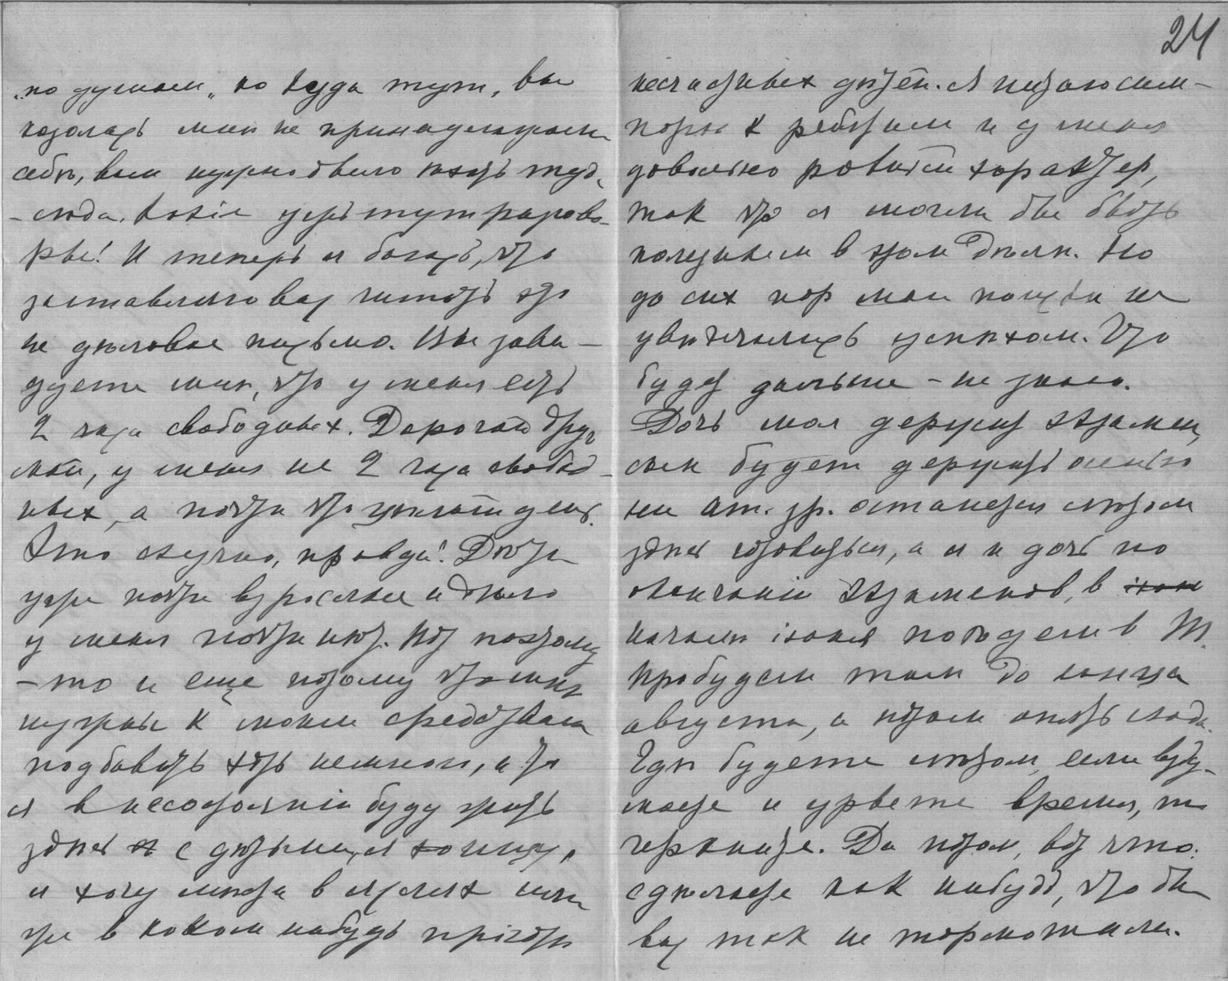 24
„по душам„ но куда тут, вы
казалось мне не принадлежали
себѣ, вам нужно было ехать туда
-сюда. Какіе ужъ тут разгово-
ры! И теперь я боюсь, что
заставляю вас читать это
не дѣловое письмо. Вы зави-
дуете мне, что у меня есть
2 часа свободных. Дорогой друг
мой, у меня не 2 часа свобод-
ных, а почти что цѣлый день.
Это скучно, правда! Дѣти
уже почти взрослые и дѣла
у меня почти нѣт. Вот поэтому
-то и еще потому что мне
нужны к моим средствам
подбавить хоть немного, и что
я в несостояніи буду жить
здѣсь с дѣтьми, я
и хочу мѣста в яслях или
же в каком нибудь пріютѣ
несчастных дѣтей. Я питаю сим-
потію к ребятам и у меня
довольно ровный характер,
так что я могла бы быть
полезным в этом дѣлѣ. Но
до сих пор мои поиски не
увѣнчались успѣхом. Что
будет дальше – не знаю.
Дочь моя держит экзамен,
сын будет держать осенью
на ат. зр. останется лѣтом
здѣсь готовиться, а я и дочь по
окончаніи экзаменов, в
началѣ іюня поѣдем в М.
Пробудем там до конца
августа, а потом опять сюда.
Гдѣ будете лѣтом, если взду-
маете и урвете время, то
черкните. Да потом, вот что:
сдѣлайте как нибудь, что бы
вас так не тормошили.